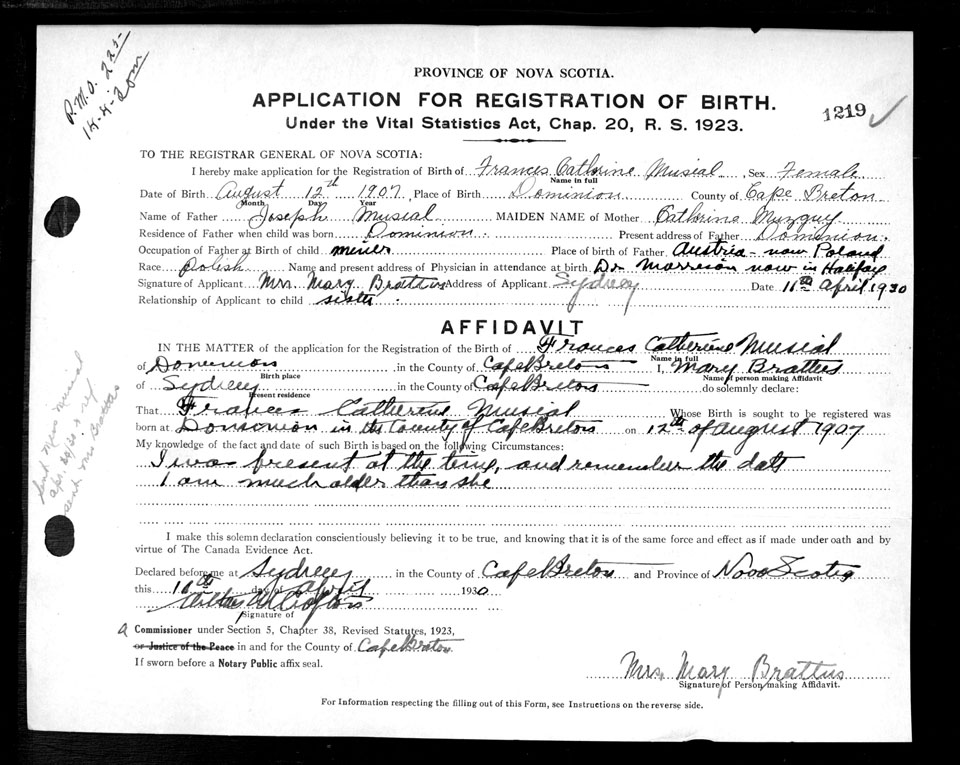 P.M.O. 2 25-
14-4-30m
PROVINCE OF NOVA SCOTIA.
APPLICATION FOR REGISTRATION OF BIRTH.
1219
Under the Vital Statistics Act, Chap. 20, R. S. 1923.
TO THE REGISTRAR GENERAL OF NOVA SCOTIA:
I hereby make application for the Registration of Birth of Frances Cathrine Musial, Sex Female
Name in full
Date of Birth August 12th 1907, Place of Birth Dominion County of Cape Breton
Month Day Year
Name of Father Joseph Musial MAIDEN NAME of Mother Cathrine Muzguy
Residence of Father when child was born Dominion. Present address of Father Dominion.
Occupation of Father at Birth of child miner Place of birth of Father, Austria - now Poland
Race Polish Name and present address of Physician in attendance at birth Dr Morreson now in Halifax
Signature of Applicant Mrs. Mary Brattus Address of Applicant Sydney Date 16th April 1930
Relationship of Applicant to child sister.
AFFIDAVIT
IN THE MATTER of the application for the Registration of the Birth of Frances Catherine Musial
Name in full
of Dominion in the County of Cape Breton I, Mary Brattus
Birth place Name of person making Affidavit
of Sydney in the County of Cape Breton do solemnly declare:
Present residence
That Frances Catherine Musial Whose Birth is sought to be registered was
born at Dominion in the County of Cape Breton on 12th of August 1907
My knowledge of the fact and date of such Birth is based on the following Circumstances:
I was present at the time, and remember the date
I am much older than she
Sent Miss Musial
apr 20/30 & ref
sent Mrs. Brattus
I make this solemn declaration conscientiously believing it to be true, and knowing that it is of the same force and effect as if made under oath and by
virtue of The Canada Evidence Act.
Declared before me at Sydney in the County of Cape Breton and Province of Nova Scotia
this 16th day of April 1930
Signature of
a Commissioner under Section 5, Chapter 38, Revised Statutes, 1923,
or Justice of the Peace in and for the County of Cape Breton
If sworn before a Notary Public affix seal.
Mrs. Mary Brattus
Signature of Person making Affidavit.
For Information respecting the filling out of this Form, see Instructions on the reverse side.